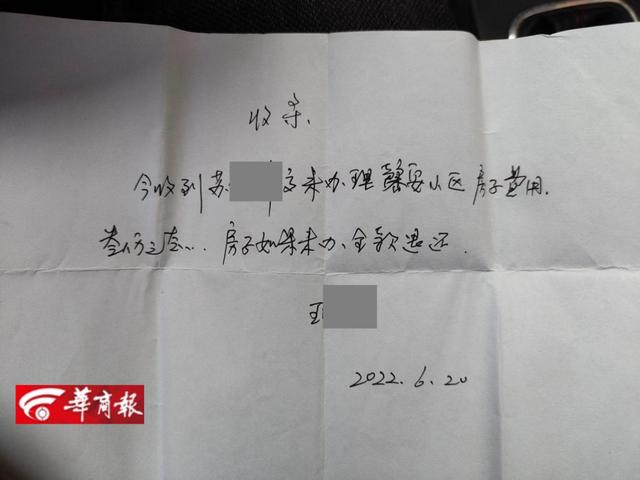 收条
今收到苏 办理馨 小区房子费用.
房子如果未办.全款退还.
王
2022.6.20
華商報